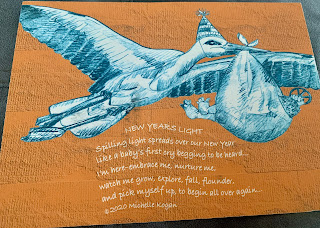 NEW YEARS LIGHT
Spilling light spreads over our New Year
like a baby's first cry begging to be heard...
I'm here-embrace me, nurture me,
watch me grow, explore, fall, flounder,
and pick myself up, to begin all over again...
©2020 Michelle Kogan